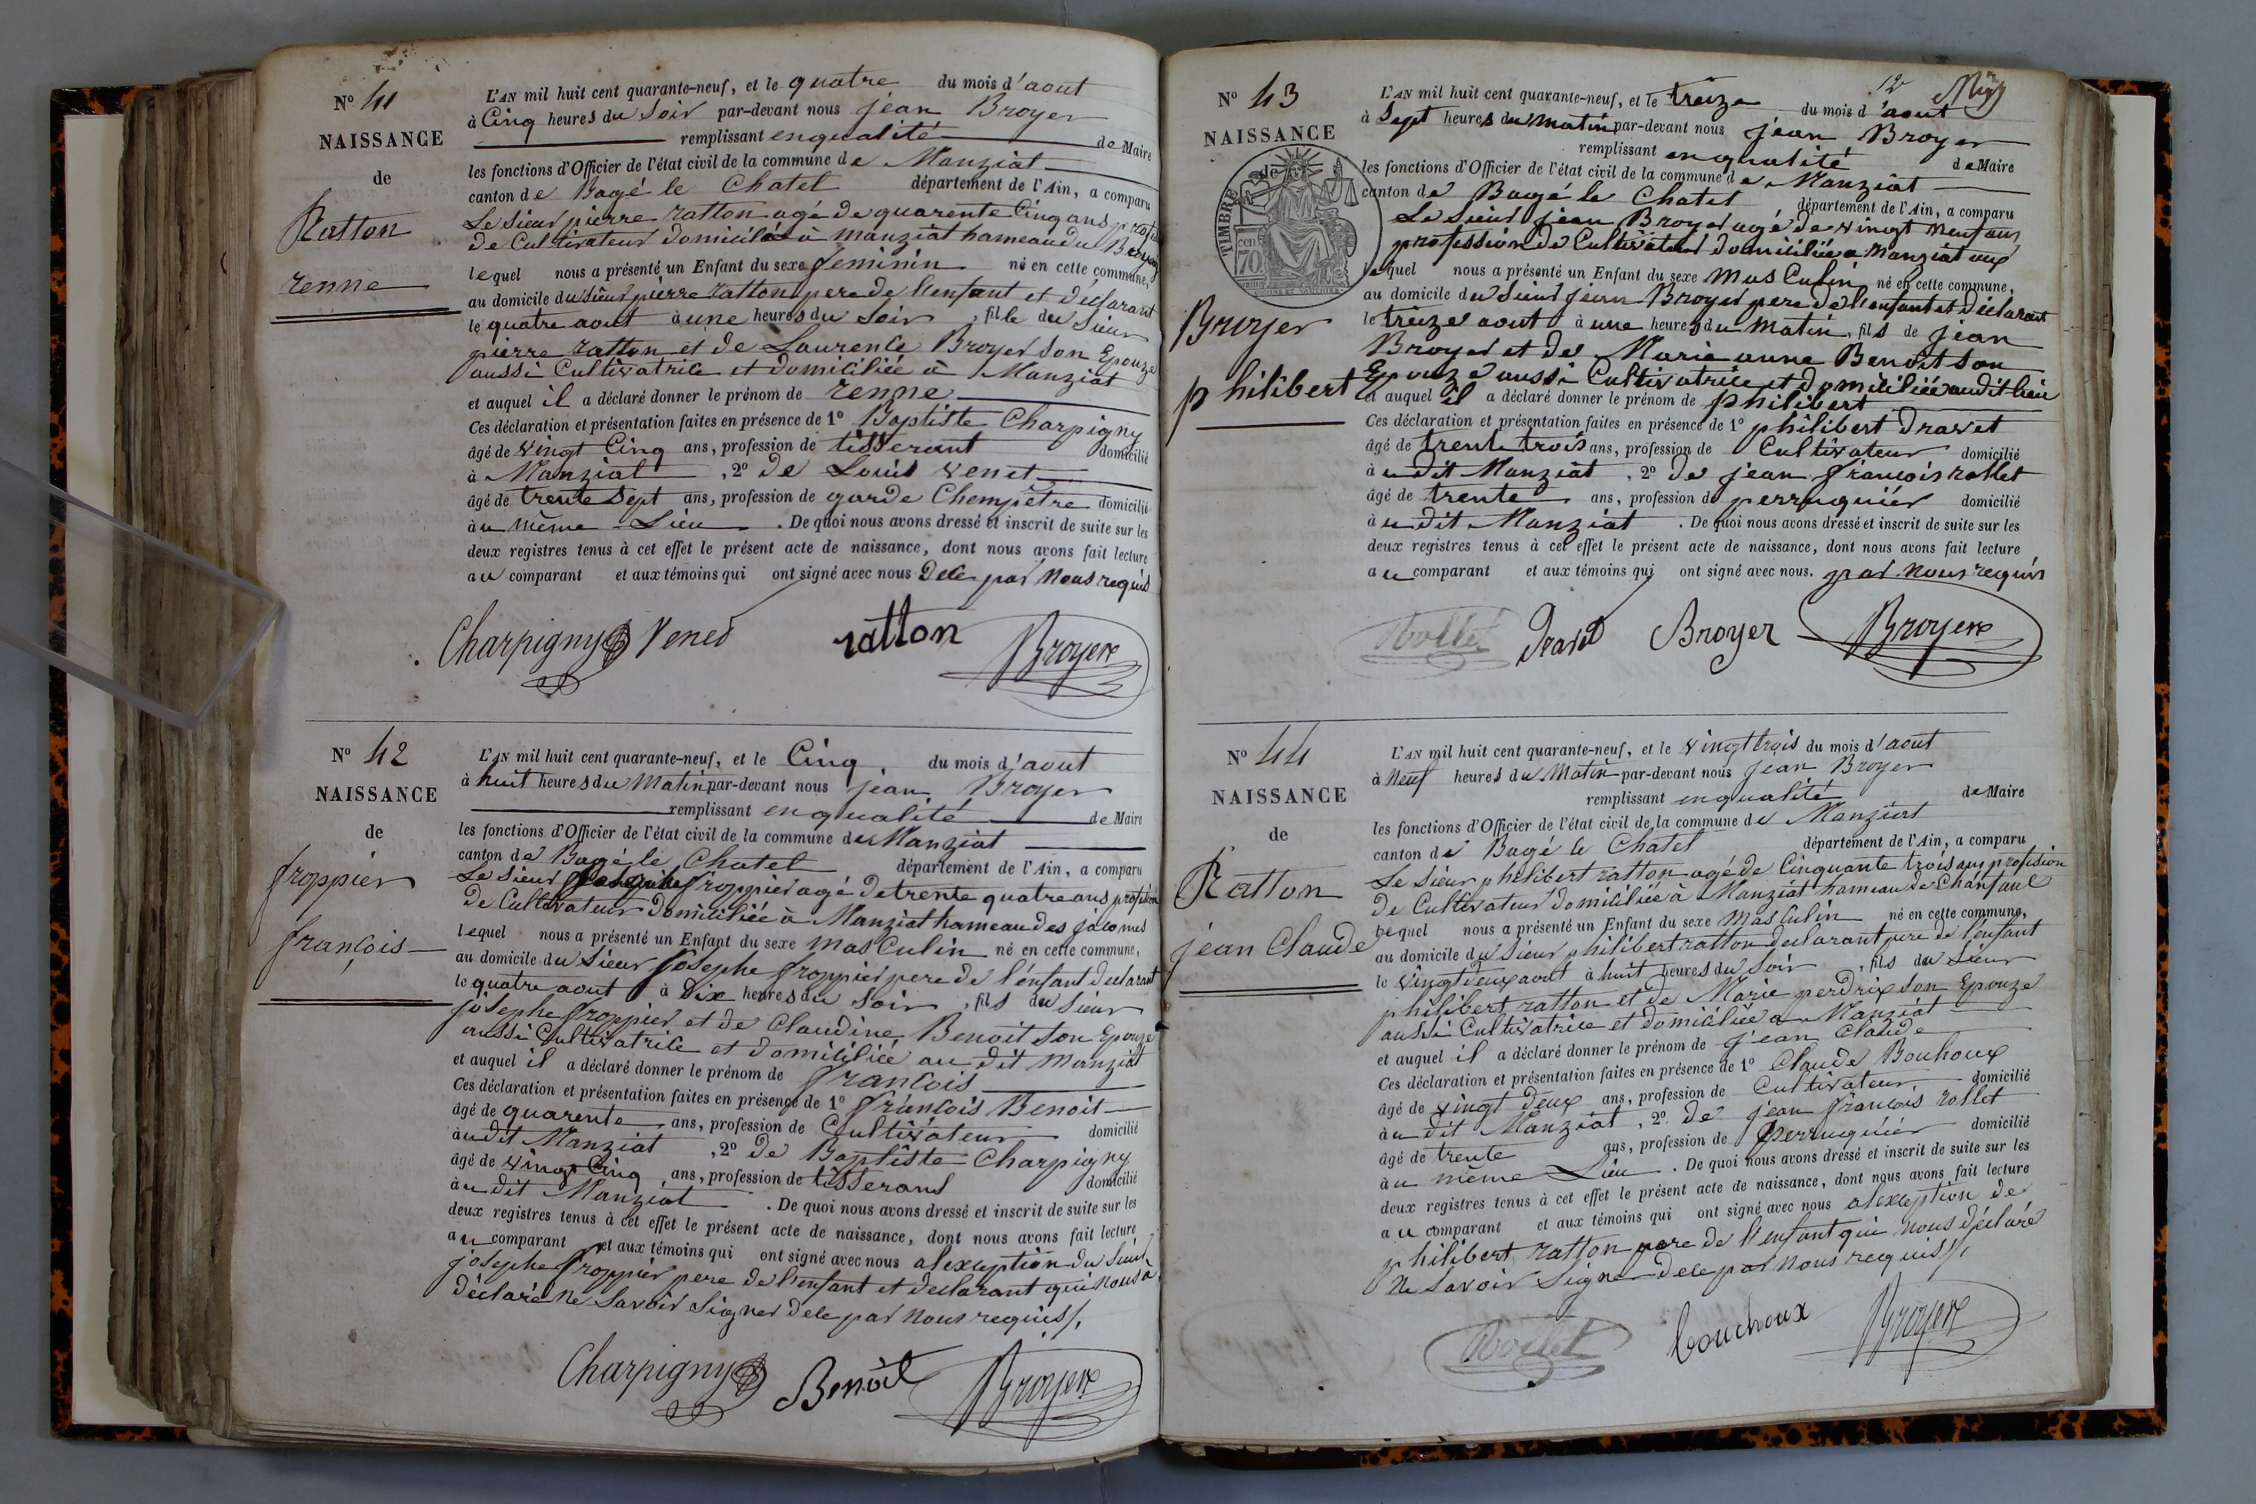 N° 41
NAISSANCE
de
Ratton
renne
L'AN mil huit cent quarante-neuf, et le quatre du mois d'aout
à Cinq heures du Soir par-devant nous jean Broyer
remplissant enqualité de Maire
les fonctions d'Officier de l'état civil de la commune de Manziat
canton de Bagé le Chatel département de l'Ain, a comparu
Le Sieur pierre ratton agé de quarente Cinq ans
de Cultivateur domicilié à manziat hameau du
lequel nous a présenté un Enfant du sexe feminin né en cette commune,
au domicile du Sieur pierre ratton pere de l'enfant et déclarant
le quatre aout à une heures du Soir, fille du Sieur
pierre ratton et de Laurence Broyer Son Epouze
aussi Cultivatrice et domiciliée à Manziat
et auquel il a déclaré donner le prénom de renne
Ces déclaration et présentation faites en présence de 1° Baptiste Charpigny
âgé de vingt Cinq ans, profession de tisserant domicilié
à Manziat, 2° de Louis venet
âgé de trente Sept ans, profession de garde Chempêtre domicilié
au même Lieu. De quoi nous avons dressé et inscrit de suite sur les
deux registres tenus à cet effet le présent acte de naissance, dont nous avons fait lecture
au comparant et aux témoins qui ont signé avec nous Dele par Nous requis
Charpigny Venet ratton Broyer
N° 42
NAISSANCE
de
froppier
françois
L'AN mil huit cent quarante-neuf, et le Cinq du mois d'aout
à huit heures du Matin par-devant nous jean Broyer
remplissant enqualité de Maire
les fonctions d'Officier de l'état civil de la commune de Manziat
canton de Bagé le Chatel département de l'Ain, a comparu
Le Sieur josephe froppier agé de trente quatre ans profession
de Cultivateur domiciliée à Manziat hameau des jacomes
lequel nous a présenté un Enfant du sexe masculin né en cette commune,
au domicile du Sieur josephe froppier pere de l'enfant declarant
le quatre aout à Dix heures du Soir, fils du Sieur
josephe froppier et de Claudine Benoit Son Epouze
aussi Cultivatrice et domiciliée au dit manziat
et auquel il a déclaré donner le prénom de françois
Ces déclaration et présentation faites en présence de 1° françois Benoit
âgé de quarente ans, profession de Cultivateur domicilié
au dit Manziat, 2° de Baptiste Charpigny
âgé de vingt Cinq ans, profession de tisserand domicilié
au dit Manziat. De quoi nous avons dressé et inscrit de suite sur les
deux registres tenus à cet effet le présent acte de naissance, dont nous avons fait lecture
au comparant et aux témoins qui ont signé avec nous alexception du Sieur
josephe froppier pere de l'enfant et declarant qui nous a
déclaré ne Savoir Signer dele par Nous requis
Charpigny Benoit Broyer
12
N° 43
NAISSANCE
TIMBRE
70
Broyer
philibert
L'AN mil huit cent quarante-neuf, et le treize du mois d'aout
à Sept heures du matin par-devant nous jean Broyer
remplissant enqualité de Maire
les fonctions d'Officier de l'état civil de la commune de Manziat
canton de Bagé le Chatel département de l'Ain, a comparu
Le Sieur jean Broyer agé de vingt neuf ans
profession de Cultivateur domiciliée a Manziat aux
lequel nous a présenté un Enfant du sexe masCulin né en cette commune,
au domicile du Sieur jean Broyer pere de l'enfant et déclarant
le treize aout à une heures du matin, fils de jean
Broyer et de Marie anne Benoit Son
Epouze aussi Cultivatrice et domiciliée audit lieu
et auquel il a déclaré donner le prénom de philibert
Ces déclaration et présentation faites en présence de 1° philibert dravet
âgé de trente trois ans, profession de Cultivateur domicilié
au dit Manziat, 2° de jean françois rollet
âgé de trente ans, profession de perruquier domicilié
au dit Manziat. De quoi nous avons dressé et inscrit de suite sur les
deux registres tenus à cet effet le présent acte de naissance, dont nous avons fait lecture
au comparant et aux témoins qui ont signé avec nous. par Nous requis
Rollet Dravet Broyer Broyer
N° 44
NAISSANCE
de
Ratton
jean Claude
L'AN mil huit cent quarante-neuf, et le vingt trois du mois d'aout
à Neuf heures du Matin par-devant nous jean Broyer
remplissant enqualité de Maire
les fonctions d'Officier de l'état civil de la commune de Manziat
canton de Bagé le Chatel département de l'Ain, a comparu
Le Sieur philibert ratton agé de Cinquante trois ans profession
de Cultivateur domiciliée à Manziat hameau de Chanfant
lequel nous a présenté un Enfant du sexe masCulin né en cette commune,
au domicile du Sieur philibert ratton declarant pere de l'enfant
le vingt deux aout à huit heures du Soir, fils du Sieur
philibert ratton et de Marie perdrix Son Epouze
aussi Cultivatrice et domiciliée a Manziat
et auquel il a déclaré donner le prénom de jean Claude
Ces déclaration et présentation faites en présence de 1° Claude Bouhoux
âgé de vingt deux ans, profession de Cultivateur domicilié
au dit Manziat, 2° de jean françois rollet
âgé de trente ans, profession de perruquier domicilié
au même Lieu. De quoi nous avons dressé et inscrit de suite sur les
deux registres tenus à cet effet le présent acte de naissance, dont nous avons fait lecture
au comparant et aux témoins qui ont signé avec nous alexception de
philibert ratton pere de l'enfant qui nous déclaré
ne Savoir Signer dele par nous requis
Rollet bouchoux Broyer